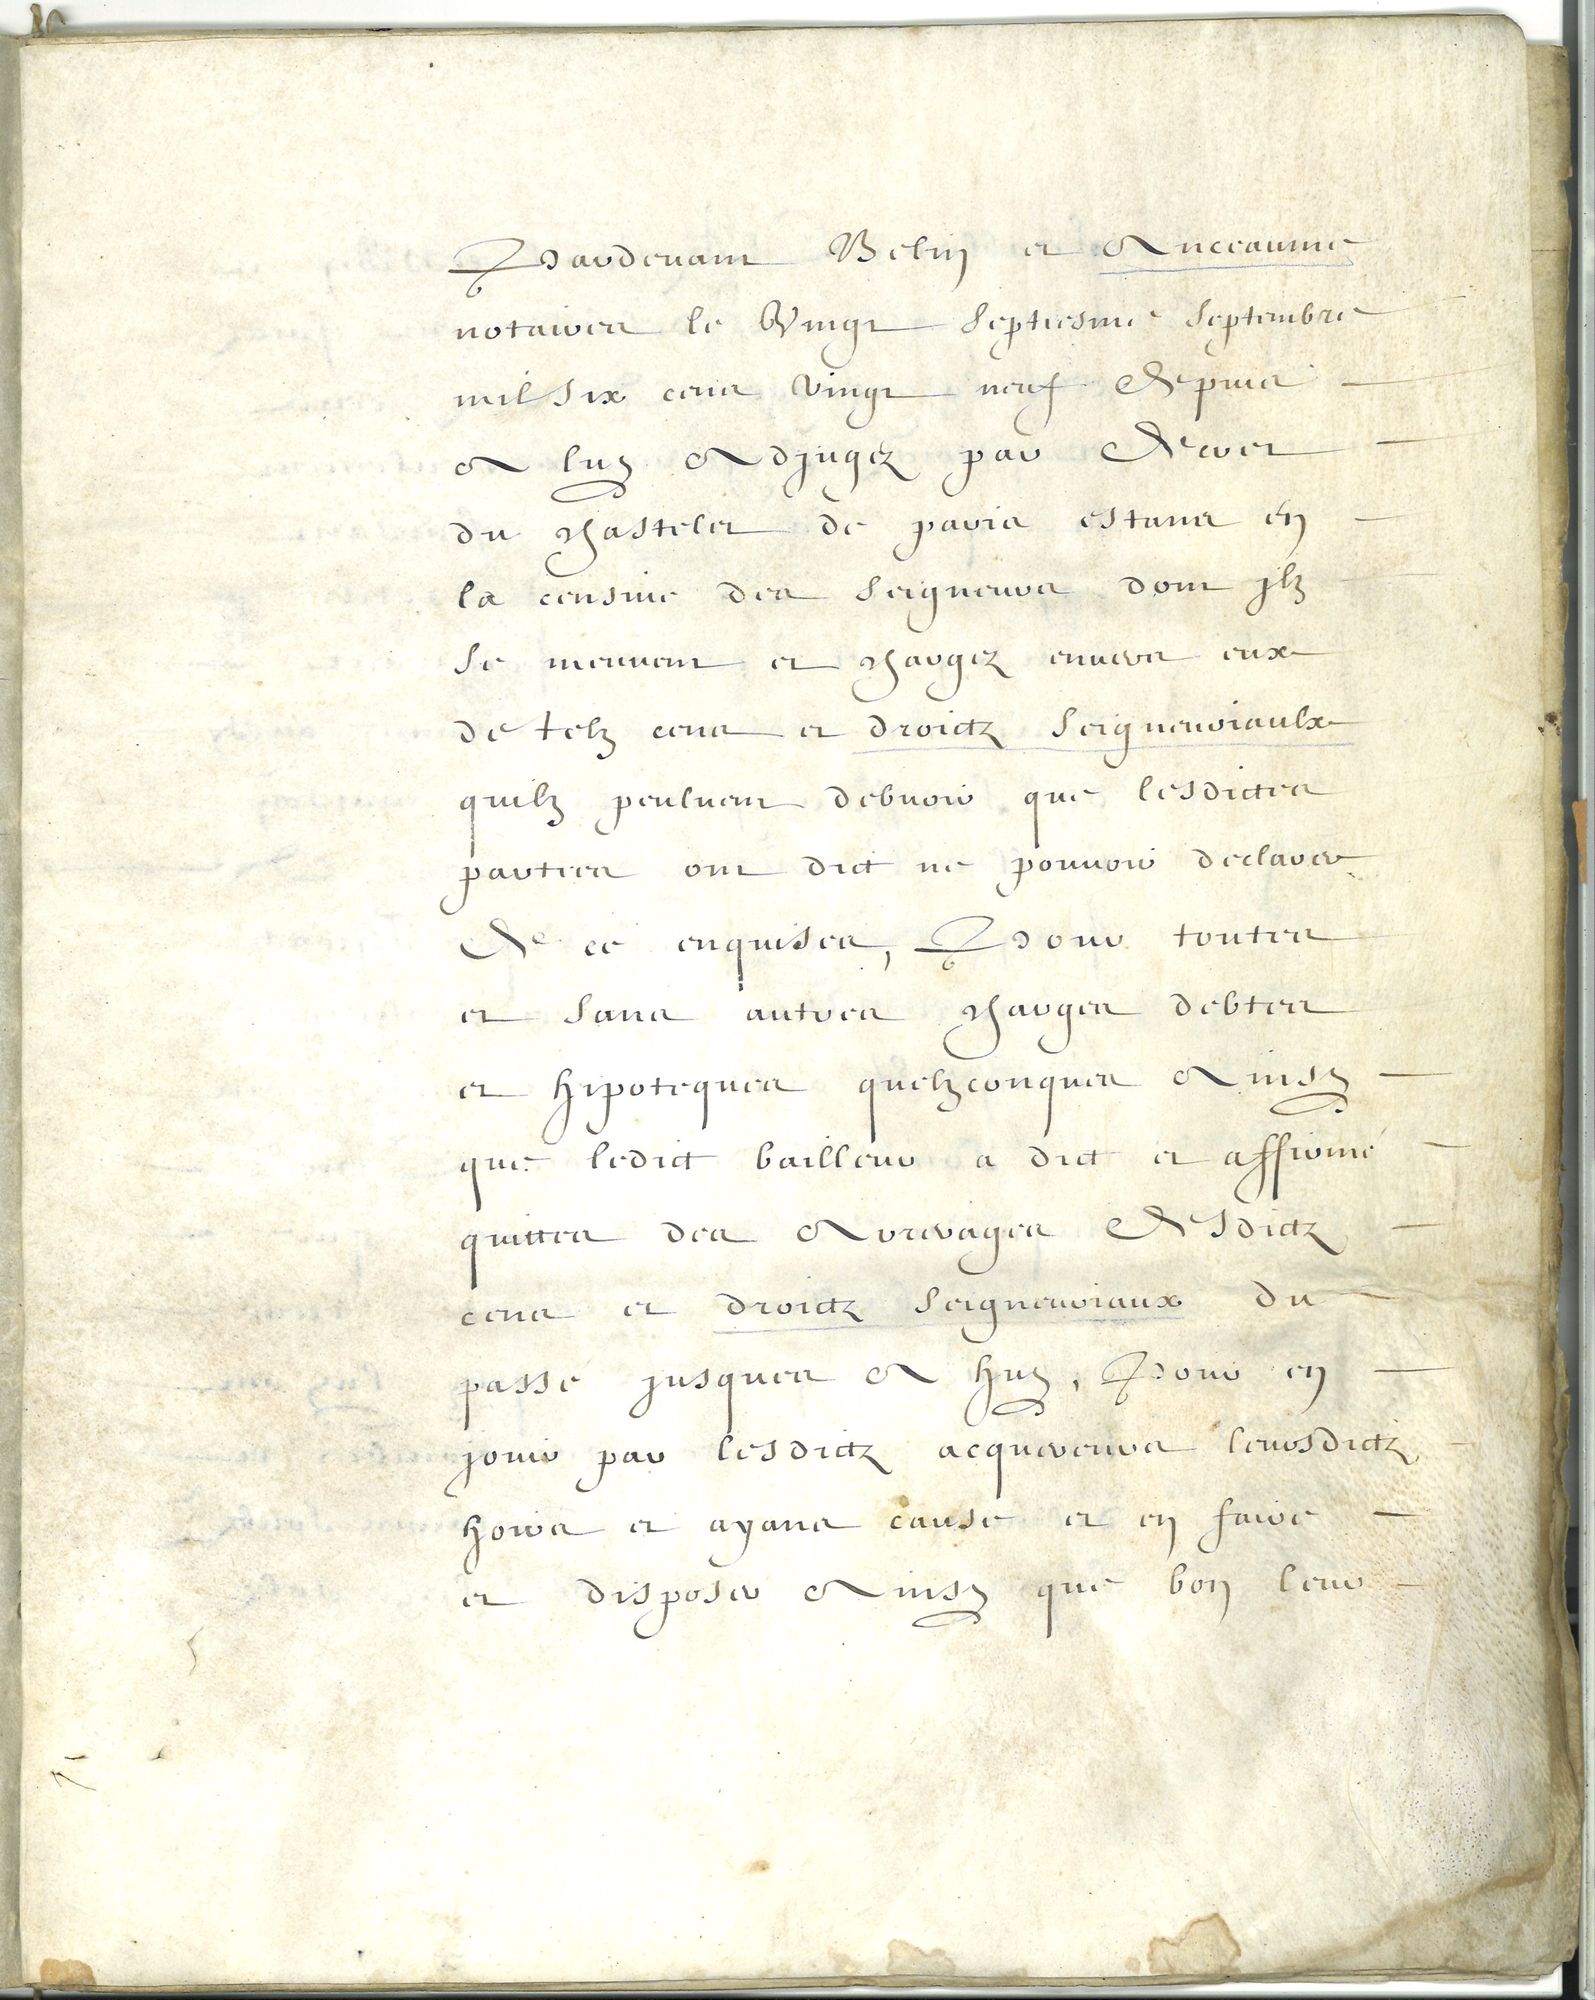 Pardevant Belin et Anceaume
notaires le Vingt Septiesme Septembre
mil Six cens Vingt neuf Depuis
A luy Adjugez par Decret
du chastelet de paris estans en
la censive des Seigneurs dont ilz
Se meuvent et chargez envers eux
de telz cens et droictz Seigneuriaulx
quilz peuluent debvoir que lesdictes
parties ont dict ne pouvoir declarer
De ce enquises, Pour toutes
et Sans autres charges debtes
et hipoteques quelzconques Ainsy
que ledict bailleur a dict et affirmé
quittes des Arrerages Desdictz
cens et droictz Seigneuriaux du
passé jusques A huy, Pour en
jouir par lesdictz acquereurs leursdictz
hoirs et ayans cause et en faire
et disposer Ainsy que bon leur